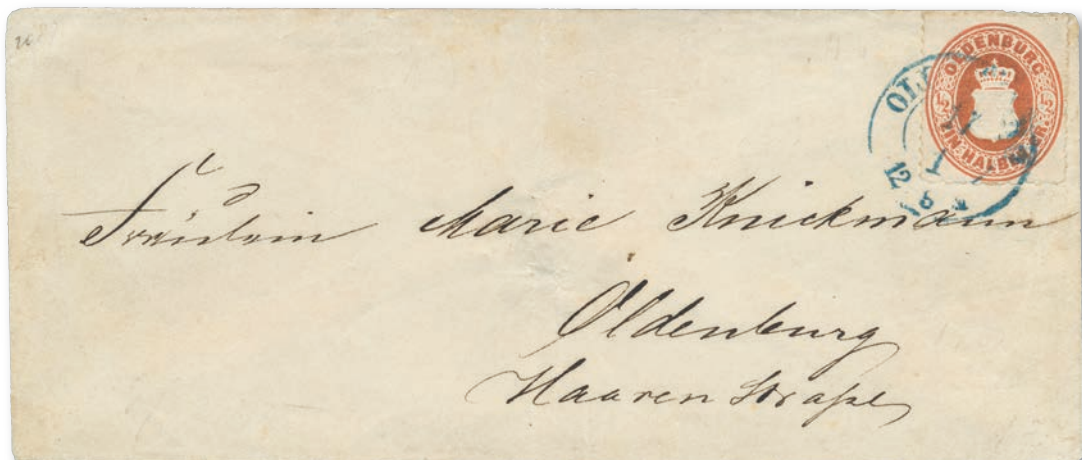 OLDENBURG
EIN HALBER GR.
12
Fräulein Marie Knickmann
Oldenburg
Haaren Straße